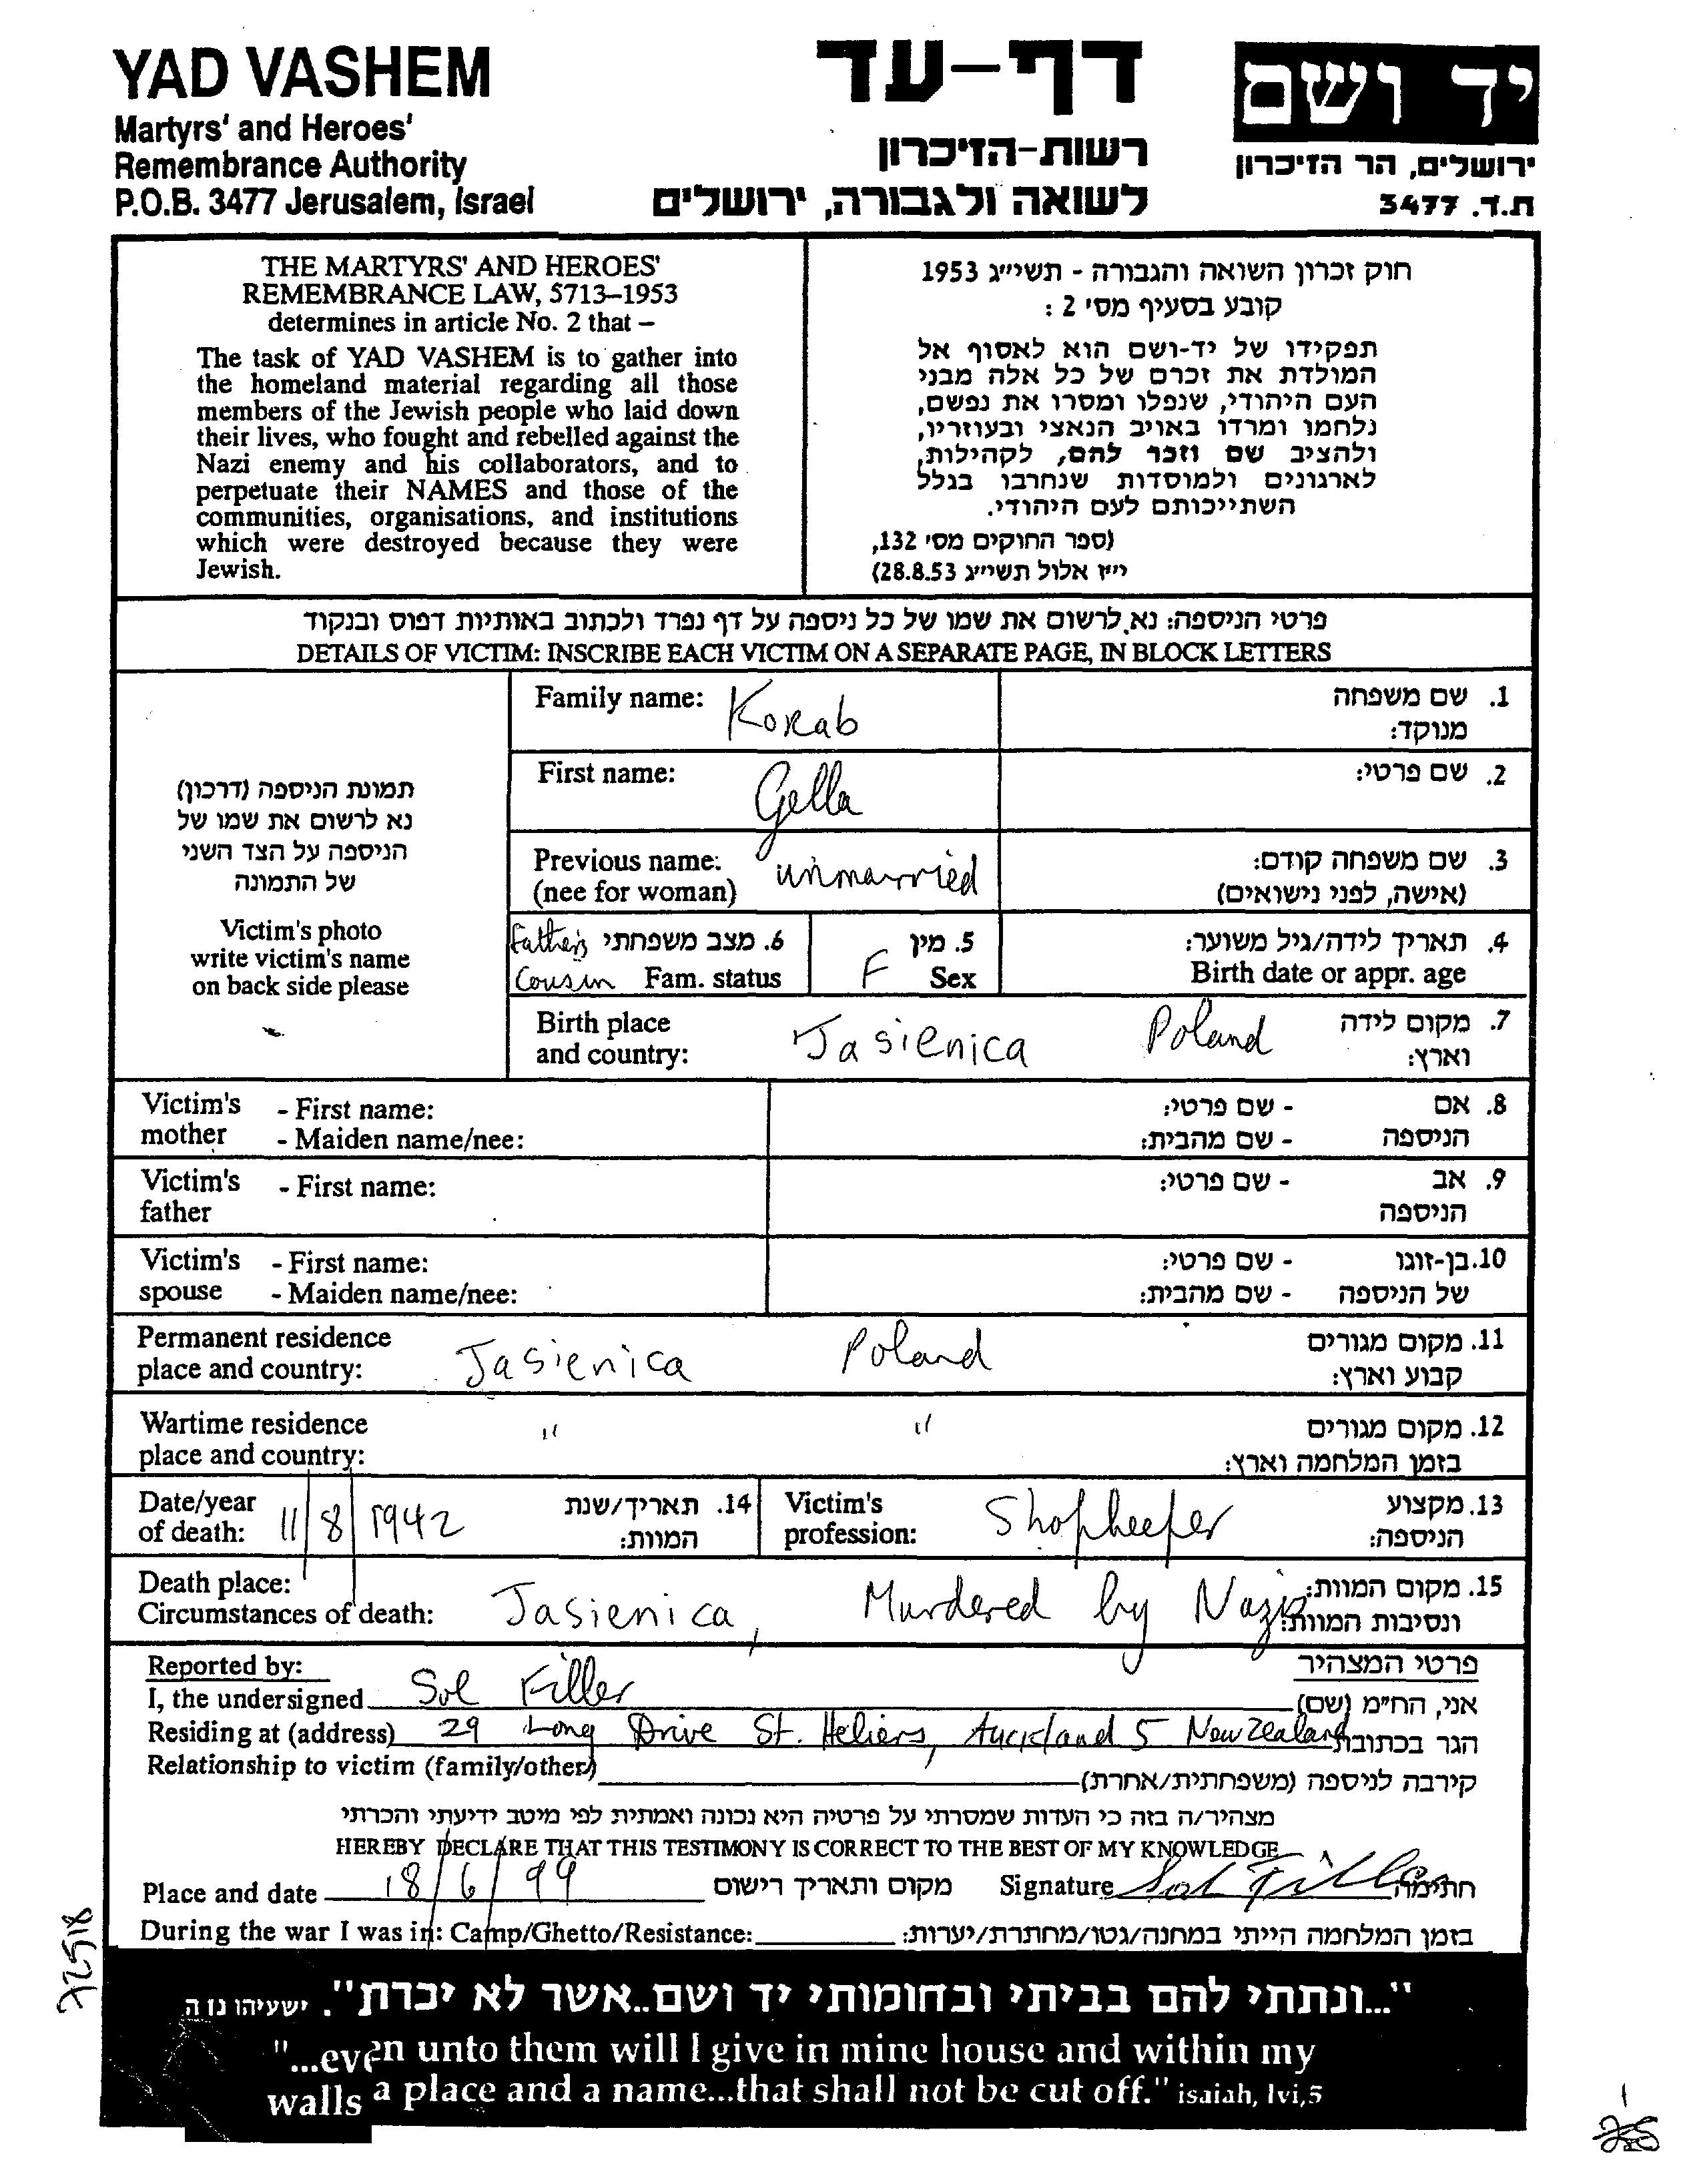 YAD VASHEM
Martyrs' and Heroes'
Remembrance Authority
P.O.B. 3477 Jerusalem, Israel
דף-עד
רשות-הזיכרון
לשואה ולגבורה, ירושלים
יד ושם
ירושלים, הר הזיכרון
ת.ד. 3477
THE MARTYRS' AND HEROES'
REMEMBRANCE LAW, 5713–1953
determines in article No. 2 that –
The task of YAD VASHEM is to gather into
the homeland material regarding all those
members of the Jewish people who laid down
their lives, who fought and rebelled against the
Nazi enemy and his collaborators, and to
perpetuate their NAMES and those of the
communities, organisations, and institutions
which were destroyed because they were
Jewish.
חוק זכרון השואה והגבורה - תשי״ג 1953
קובע בסעיף מס׳ 2 :
תפקידו של יד-ושם הוא לאסוף אל
המולדת את זכרם של כל אלה מבני
העם היהודי, שנפלו ומסרו את נפשם,
נלחמו ומרדו באויב הנאצי ובעוזריו,
ולהציב שם וזכר להם, לקהילות,
לארגונים ולמוסדות שנחרבו בגלל
השתייכותם לעם היהודי.
(ספר החוקים מס׳ 132,
י״ז אלול תשי״ג 28.8.53)
פרטי הניספה: נא לרשום את שמו של כל ניספה על דף נפרד ולכתוב באותיות דפוס ובנקוד
DETAILS OF VICTIM: INSCRIBE EACH VICTIM ON A SEPARATE PAGE, IN BLOCK LETTERS
תמונת הניספה (דרכון)
נא לרשום את שמו של
הניספה על הצד השני
של התמונה
Victim's photo
write victim's name
on back side please
Family name: Korab 1. שם משפחה
מנוקד:
First name: Gella 2. שם פרטי:
Previous name: unmarried 3. שם משפחה קודם:
(nee for woman) (אישה, לפני נישואים)
Father's 6. מצב משפחתי 5. מין 4. תאריך לידה/גיל משוער:
Cousin Fam. status F Sex Birth date or appr. age
Birth place Jasienica Poland 7. מקום לידה
and country: וארץ:
Victim's - First name: - שם פרטי: 8. אם
mother - Maiden name/nee: - שם מהבית: הניספה
Victim's - First name: - שם פרטי: 9. אב
father הניספה
Victim's - First name: - שם פרטי: 10. בן-זוגו
spouse - Maiden name/nee: - שם מהבית: של הניספה
Permanent residence Jasienica Poland 11. מקום מגורים
place and country: קבוע וארץ:
Wartime residence " " 12. מקום מגורים
place and country: בזמן המלחמה וארץ:
Date/year 11/8/1942 14. תאריך/שנת Victim's Shopkeeper 13. מקצוע
of death: המוות: profession: הניספה:
Death place: 15. מקום המוות:
Circumstances of death: Jasienica, Murdered by Nazis ונסיבות המוות:
Reported by: פרטי המצהיר
I, the undersigned Sol Filler אני, הח״מ (שם)
Residing at (address) 29 Long Drive St. Heliers, Auckland 5 New Zealand הגר בכתובת
Relationship to victim (family/other) קירבה לניספה (משפחתית/אחרת)
מצהיר/ה בזה כי העדות שמסרתי על פרטיה היא נכונה ואמתית לפי מיטב ידיעתי והכרתי
HEREBY DECLARE THAT THIS TESTIMONY IS CORRECT TO THE BEST OF MY KNOWLEDGE
Place and date 18/6/99 מקום ותאריך רישום Signature Sol Filler חתימה
During the war I was in: Camp/Ghetto/Resistance: בזמן המלחמה הייתי במחנה/גטו/מחתרת/יערות:
"...ונתתי להם בביתי ובחומותי יד ושם..אשר לא יכרת". ישעיהו נו ה
"...even unto them will I give in mine house and within my
walls a place and a name...that shall not be cut off." isaiah, lvi,5